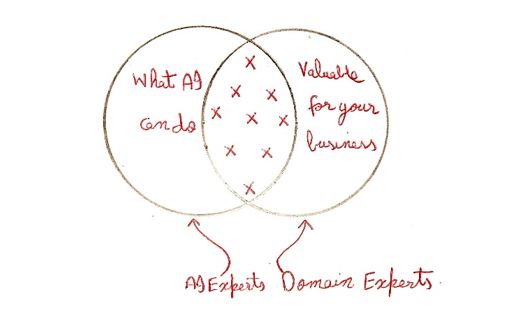 What AI
can do
Valuable
for your
business
AI Experts
Domain Experts